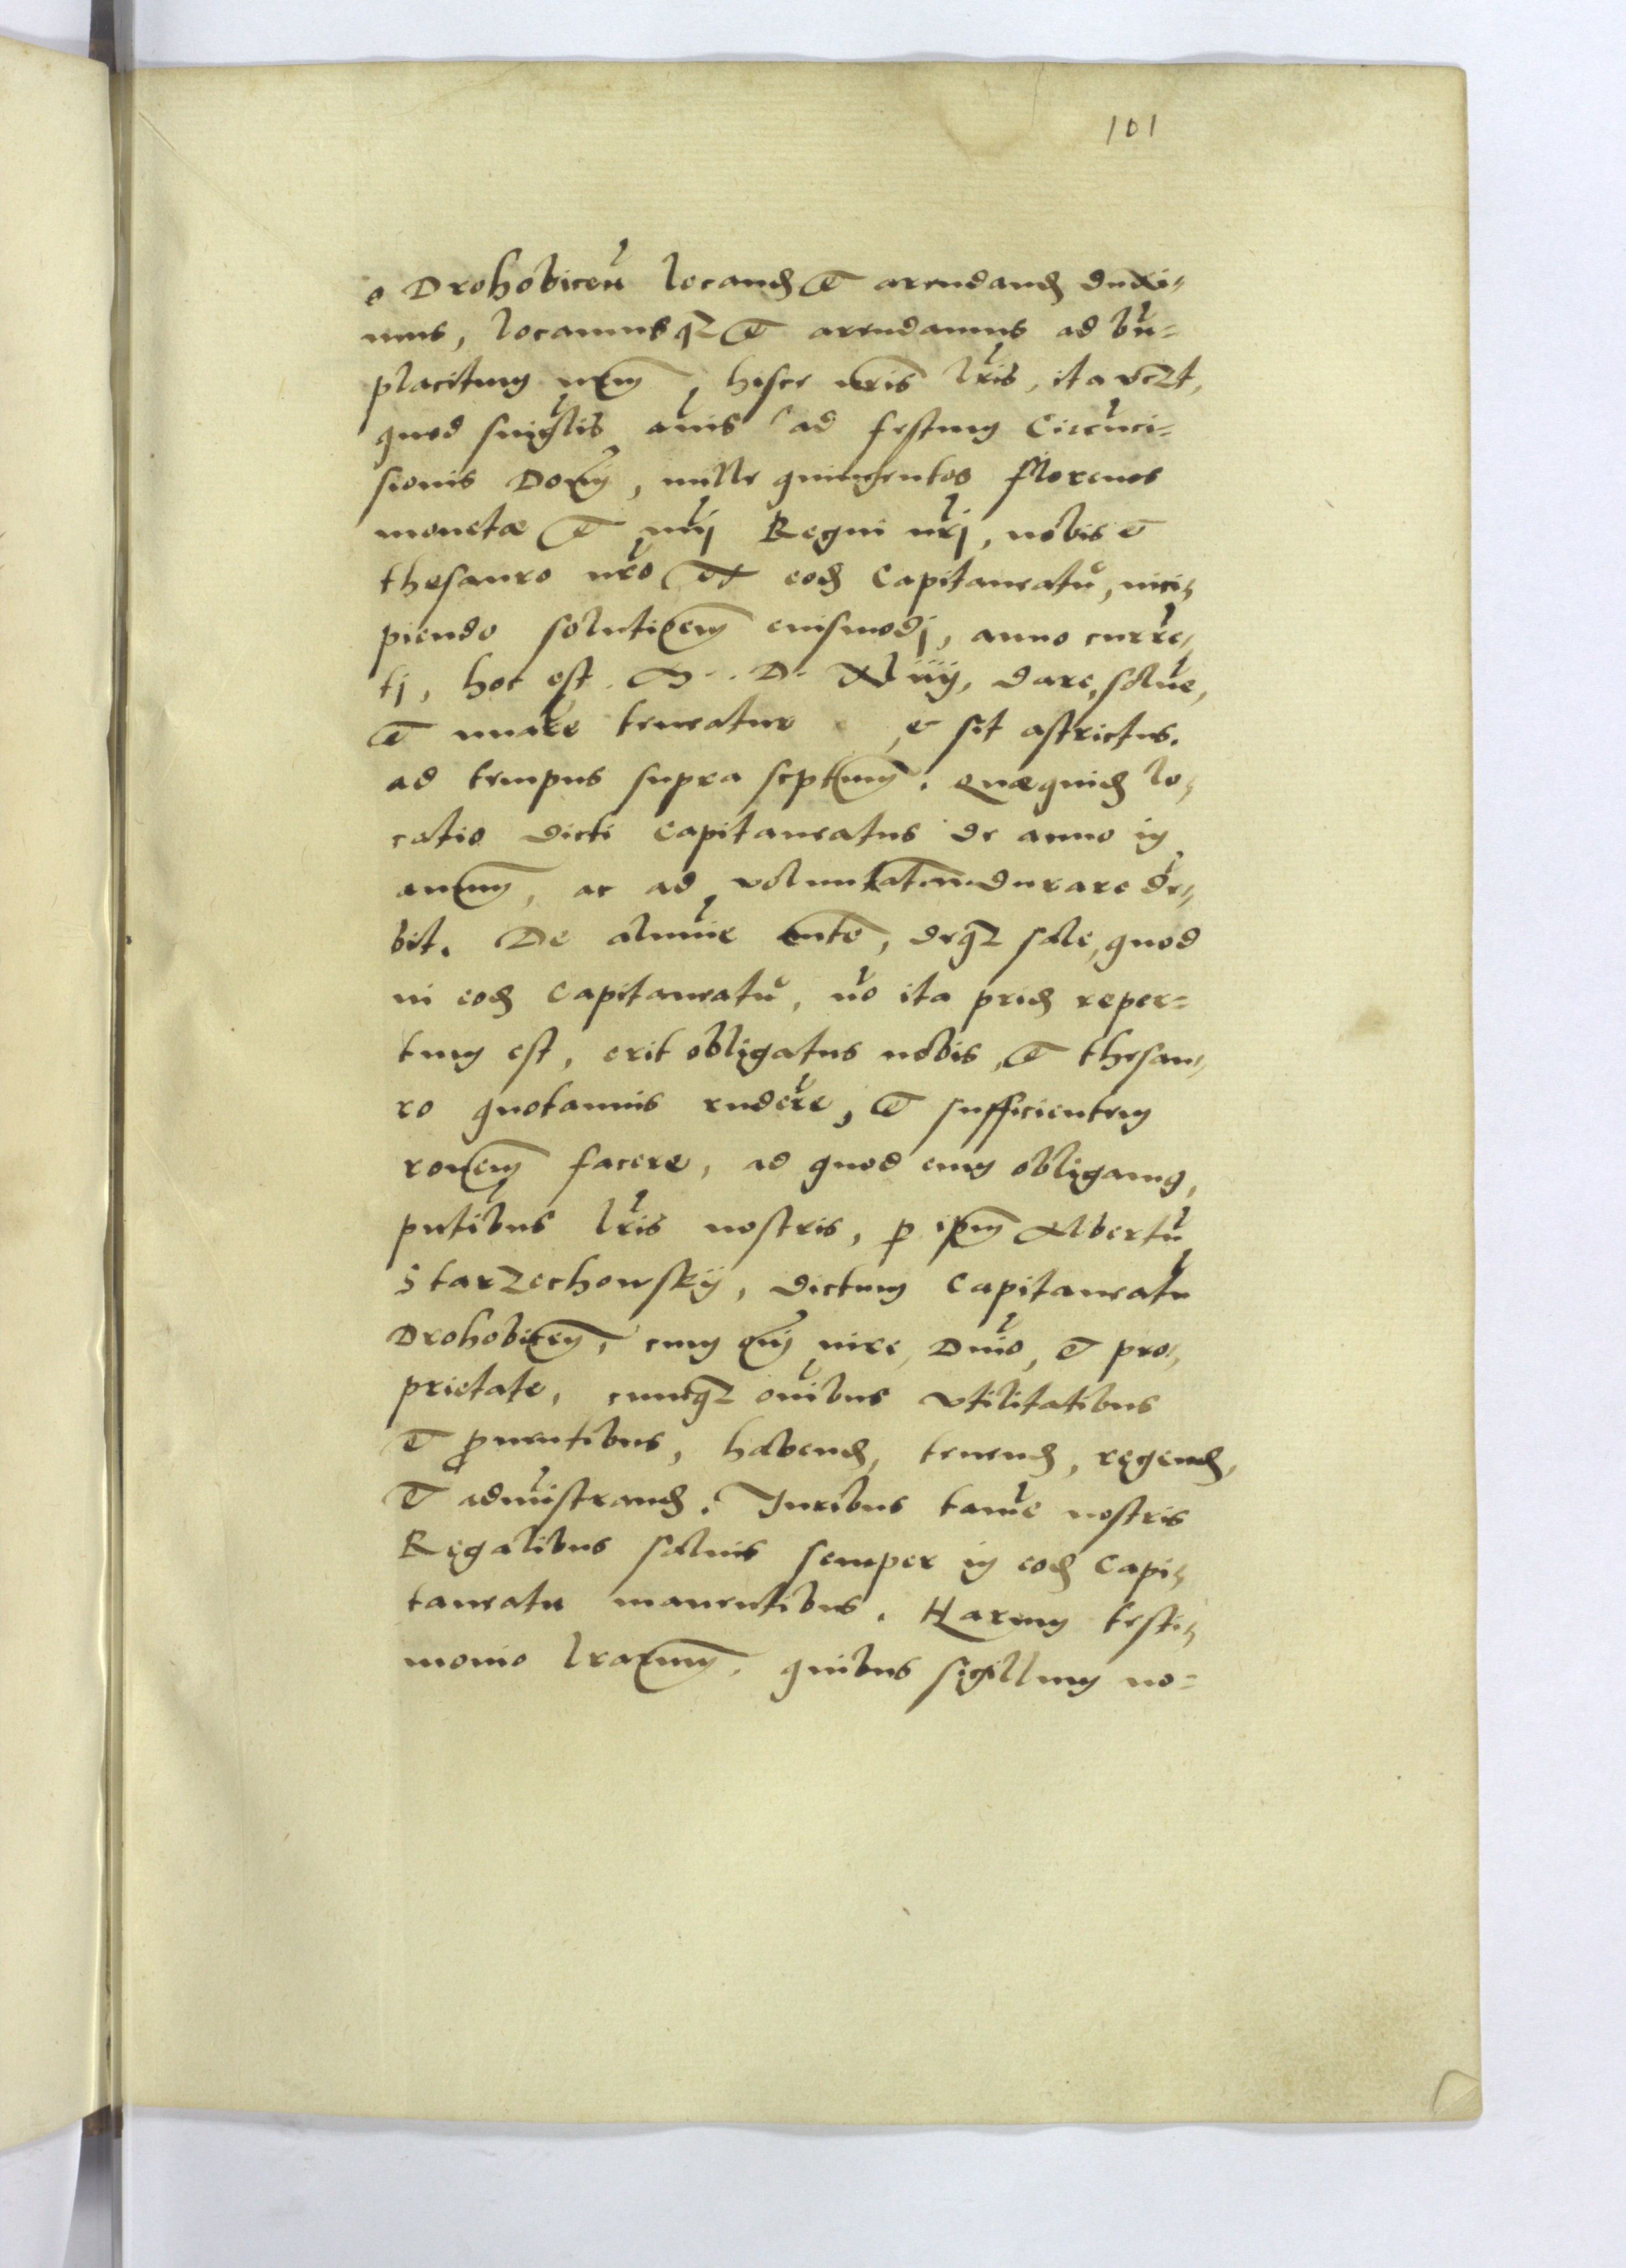 101
o Drohobiceñ locand et arendand duxi-
mus, locamusqz et arendamus ad bn̄-
placitum nr̄m, hisce nr̄is lr̄is, ita vczt,
quod singlis annis ad festum Circūci-
sionis Domī, mille quingentos florenos
monetæ et nūj Regni nr̄j, nobis et
thesauro nr̄o ex eod Capitaneatu, inci-
piendo solutiōem eiusmodj, anno currē-
tj, hoc est M. D. Xliiij, dare, solue,
et nūare teneatur et sit astrictus.
ad tempus supra scptum. Quæquid lo-
catio dicti Capitaneatus de anno in
annum, ac ad voluntatem durare de-
bit. De alumīe aute, deqz sale, quod
in eod Capitaneatu, n̄o ita prid reper-
tum est, erit obligatus nobis, et thesau-
ro quotannis rndere, et sufficientem
roēm facere, ad quod eum obligamus,
pntibus lr̄is nostris, p ipm Albertū
Starzechowskÿ, dictum Capitaneatū
Drohobicem, cum om̄j iure, Dn̄io, et pro-
prietate, cumqz om̄ibus vtilitatibus
et puentibus, habend, tenend, regend,
et admīstrand. Juribus tamē nostris
Regalibus saluis semper in eod Capi-
taneatu manentibus. Harum testi-
monio lrarum, quibus sigillum no-